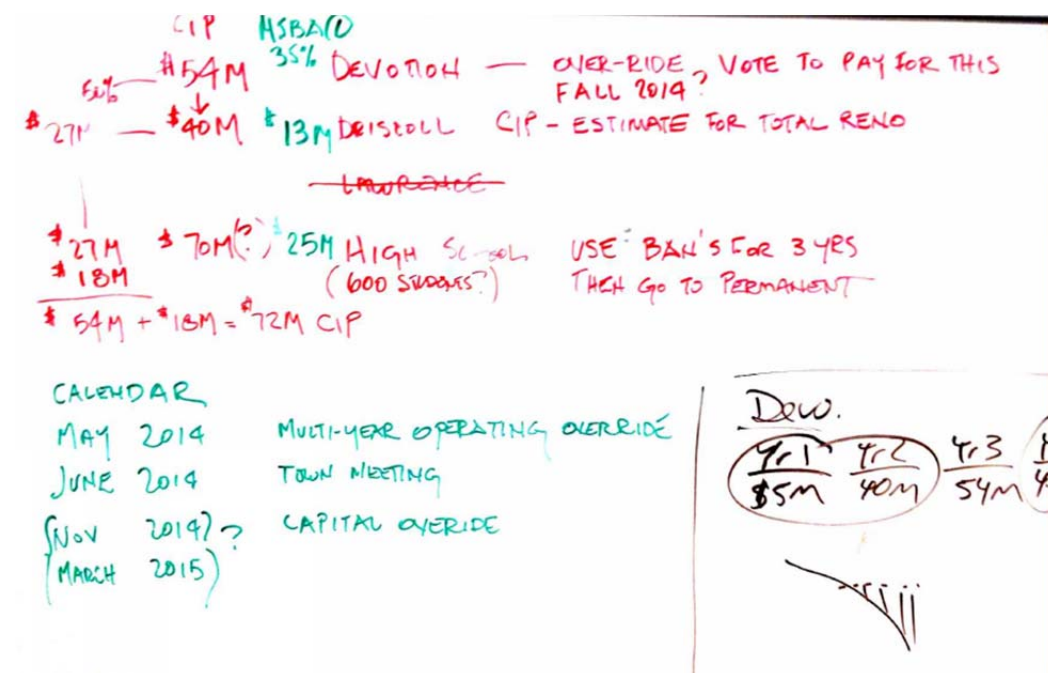 CIP MSBA(?)
50% $54M 35% DEVOTION — OVER-RIDE VOTE TO PAY FOR THIS
FALL 2014?
$27M — $40M $13M DRISCOLL CIP - ESTIMATE FOR TOTAL RENO
LAWRENCE
$27M $70M(?) $25M HIGH SCHOOL USE BAN'S FOR 3 YRS
$18M (600 STUDENTS?) THEN GO TO PERMANENT
$54M + $18M = $72M CIP
CALENDAR
MAY 2014 MULTI-YEAR OPERATING OVERRIDE
JUNE 2014 TOWN MEETING
(NOV 2014)? CAPITAL OVERIDE
(MARCH 2015)
Devo.
Yr1 Yr2 Yr3
$5M 40M 54M